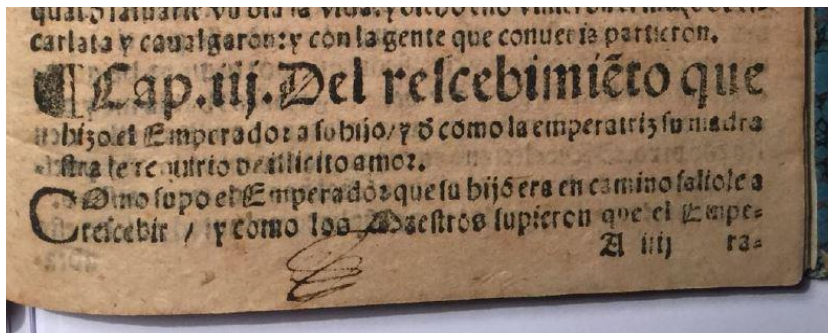 carlata y caualgaron: y con la gente que conuenia partieron.
¶ Cap.iij. Del rescebimiẽto que
hizo el Emperador a su hijo/ y d̓ como la emperatriz su madra
stra le requirio de illicito amor.
Como supo el Emperador que su hijo era en camino saliole a
rescebir / y como los Maestros supieron que el Empe-
A iiij ra-